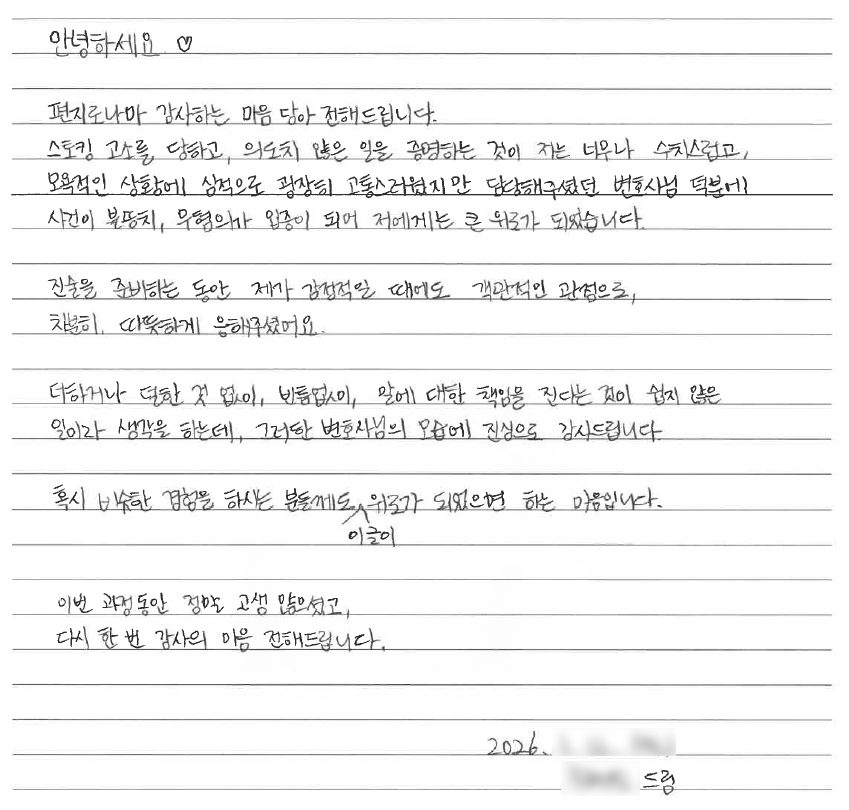 안녕하세요 ♡
편지로나마 감사하는 마음 담아 전해드립니다.
스토킹 고소를 당하고, 의도치 않은 일을 증명하는 것이 저는 너무나 수치스럽고,
모욕적인 상황에 심적으로 굉장히 고통스러웠지만 담당해주셨던 변호사님 덕분에
사건이 불송치, 무혐의가 입증이 되며 저에게는 큰 위로가 되었습니다.
진술을 준비하는 동안 제가 감정적일 때에도 객관적인 관점으로,
차분히, 따뜻하게 응해주셨어요.
더하거나 덜한 것 없이, 빈틈없이, 말에 대한 책임을 진다는 것이 쉽지 않은
일이라 생각을 하는데, 그러한 변호사님의 모습에 진심으로 감사드립니다.
혹시 비슷한 경험을 하시는 분들께도 위로가 되었으면 하는 마음입니다.
이글이
이번 과정동안 정말 고생 많으셨고,
다시 한 번 감사의 마음 전해드립니다.
2026.
드림